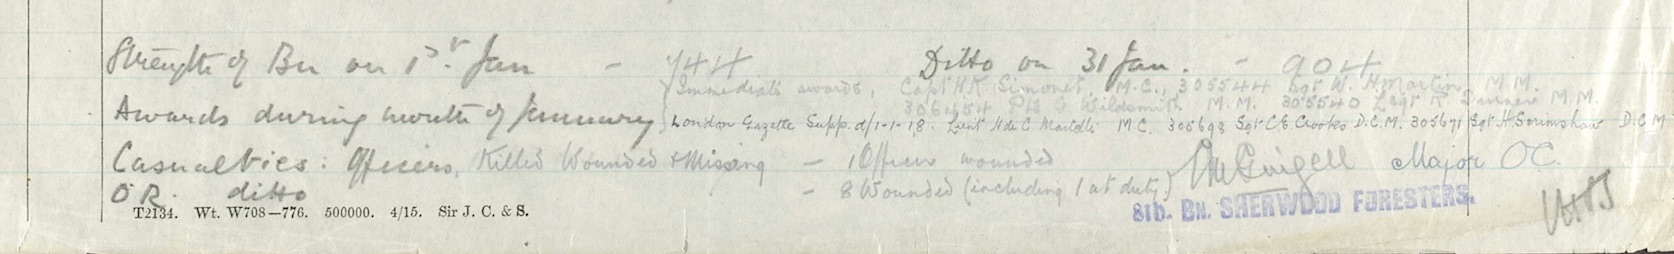 Strength of Bn on 1st Jan - 744 Ditto on 31 Jan. - 904
Immediate awards, Capt H.K Simonet, M.C., 305544 Sgt W. Martin M.M.
306454 Pte C Wildsmith M.M. 305540 L/Sgt R M.M.
Awards during month of January
London Gazette Supp. d/1-1-18. Lieut H de C. Martelli M.C. 305698 Sgt C.E. Crooks D.C.M. 305671 Sgt H Scrimshaw D.C.M
Casualties: Officers, Killed Wounded & Missing - 1 Officer wounded
Major O.C.
O.R. ditto - 8 Wounded (including 1 at duty)
8th. BN. SHERWOOD FORESTERS.
T2134. Wt. W708—776. 500000. 4/15. Sir J. C. & S.